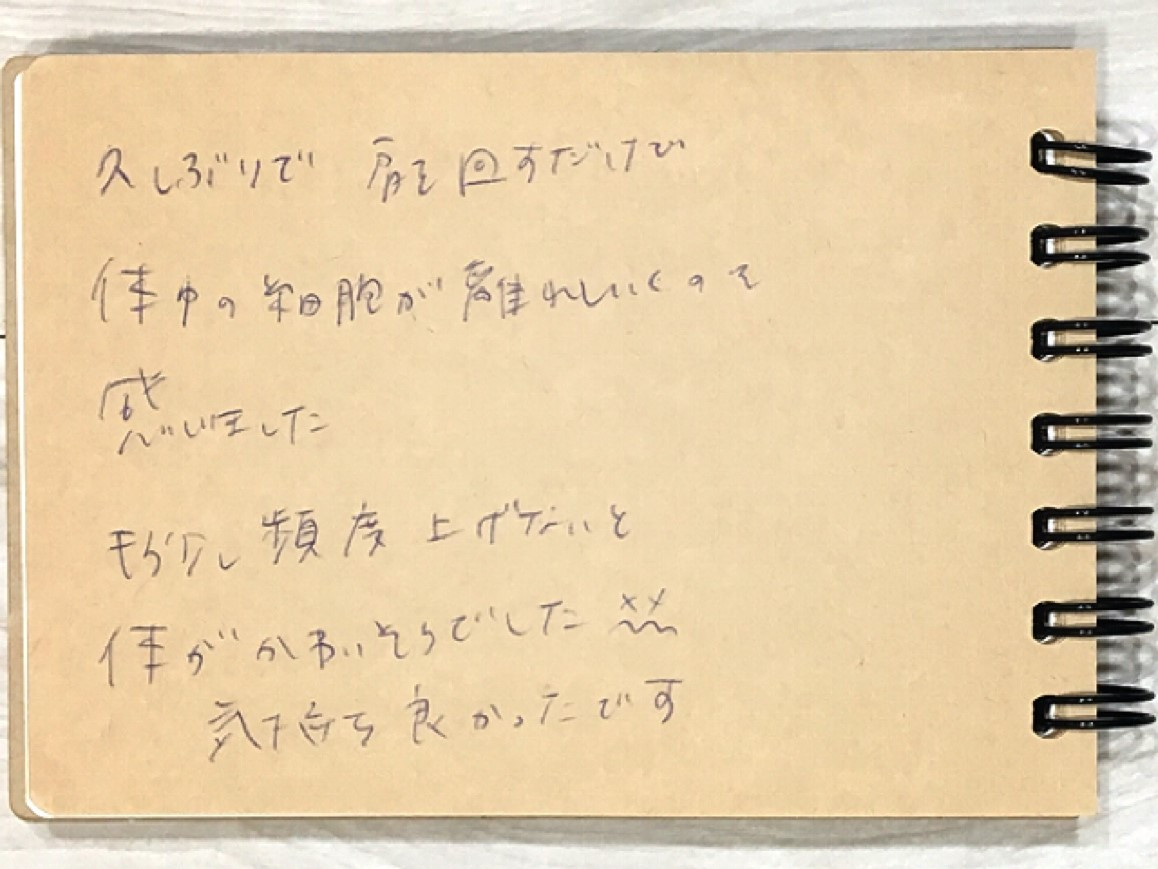 久しぶりで 肩を回すだけで
体中の細胞が離れていくのを
感じました
もう少し頻度上げないと
体がかわいそうでした
気持ち良かったです